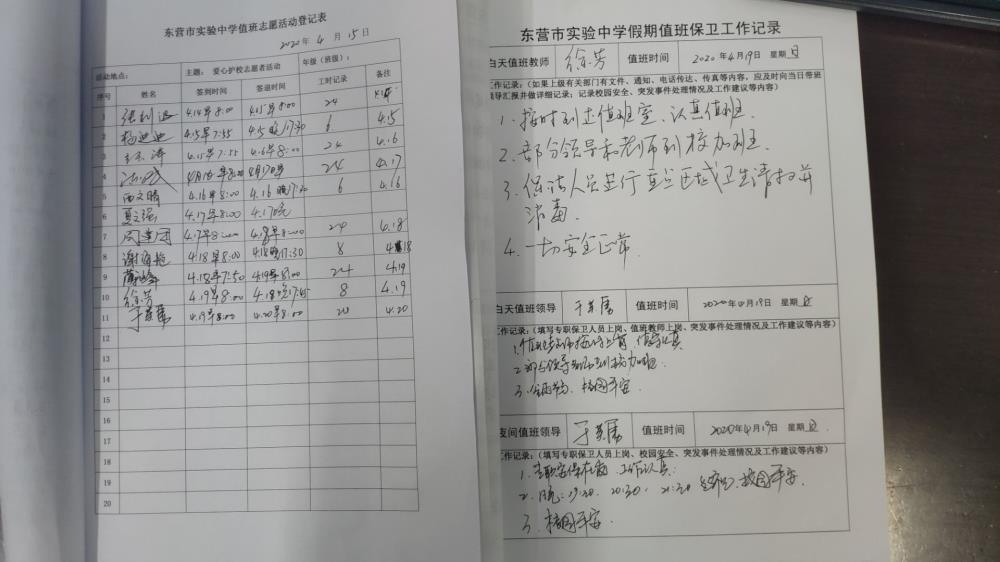 东营市实验中学值班志愿活动登记表
2020年4月15日
活动地点： 主题： 爱心护校志愿者活动 年级（班级）：
序号 姓名 签到时间 签退时间 工时记录 备注
1 4.14早8:00 4.15早8:00 24
2 杨迪迪 4.15早7:55 4.5晚17:30 6 4.5
3 4.15早7:55 4.6早8:00 24 4.16
4 4月16早8:00 24 4.17
5 西文晴 4.16早8:00 4.16晚17:30 6 4.16
6 夏文强 4.17早8:00 4.17晚
7 4.17早8:00 4.18早8:00 24 4.18
8 4.18早8:00 4.18晚17:30 8 4.18
9 4.18早7:50 4.19早8:00 24 4.19
10 徐芳 4.19早8:00 4.18晚17:45 8 4.19
11 4.19早8:00 4.20早8:00 20 4.20
12
13
14
15
16
17
18
19
20
东营市实验中学假期值班保卫工作记录
白天值班教师 徐芳 值班时间 2020年4月19日 星期日
工作记录：（如果上级有关部门有文件、通知、电话传达、传真等内容，应及时向当日带班
领导汇报并做详细记录；记录校园安全、突发事件处理情况及工作建议等内容）
1、按时到达值班室、认真值班
2、部分领导和老师到校加班
3、保洁人员进行责任区域卫生清扫并
消毒
4、一切安全正常
白天值班领导 值班时间 2020年4月19日 星期日
工作记录：（填写专职保卫人员上岗、值班教师上岗、突发事件处理情况及工作建议等内容）
1、值班老师按时上岗 值守认真
2、部分领导老师到校加班
3、校园平安
夜间值班领导 值班时间 2020年4月19日 星期日
工作记录：（填写专职保卫人员上岗、校园安全、突发事件处理情况及工作建议等内容）
1、保在岗 工作认真
2、晚：19:20、20:30、21:30 校园平安
3、校园平安